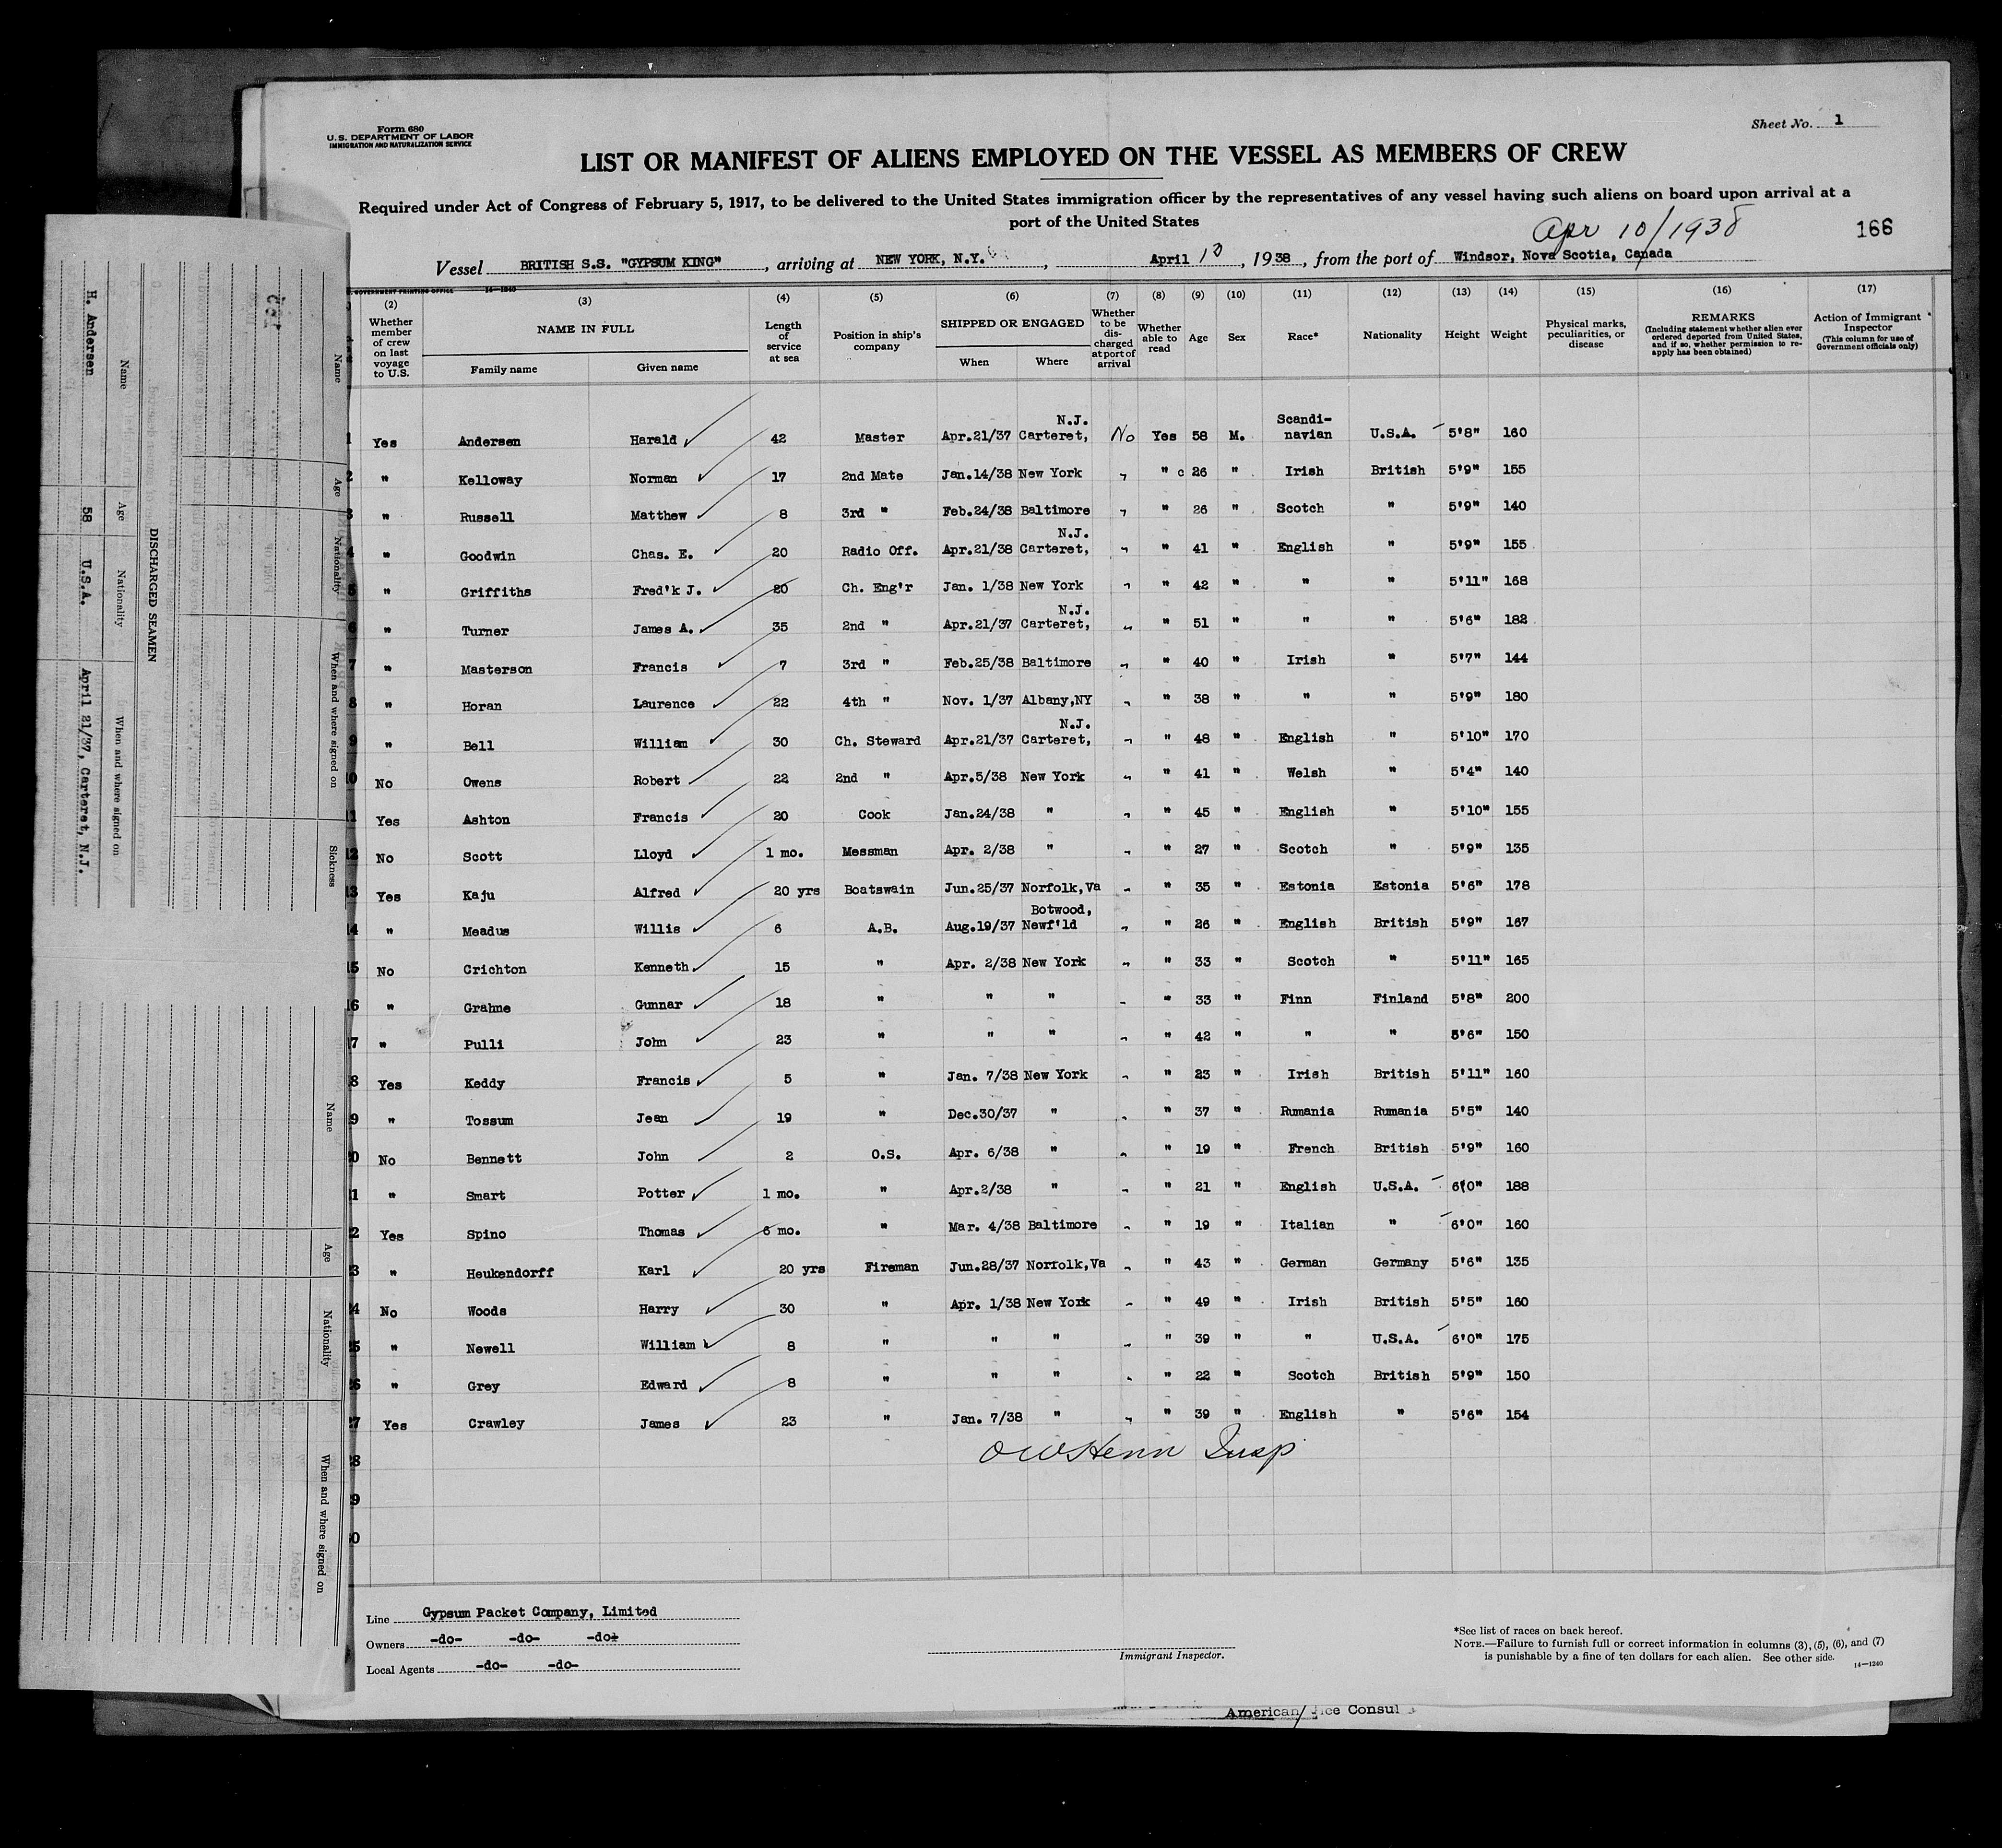 Form 680
U. S. DEPARTMENT OF LABOR
IMMIGRATION AND NATURALIZATION SERVICE
Sheet No. 1
LIST OR MANIFEST OF ALIENS EMPLOYED ON THE VESSEL AS MEMBERS OF CREW
Required under Act of Congress of February 5, 1917, to be delivered to the United States immigration officer by the representatives of any vessel having such aliens on board upon arrival at a
port of the United States
Apr 10/1938
166
Vessel BRITISH S.S. "GYPSUM KING", arriving at NEW YORK, N.Y., April 10, 1938, from the port of Windsor, Nova Scotia, Canada
GOVERNMENT PRINTING OFFICE 14-1240
(2) (3) (4) (5) (6) (7) (8) (9) (10) (11) (12) (13) (14) (15) (16) (17)
Whether member of crew on last voyage to U.S. NAME IN FULL Family name Given name Length of service at sea Position in ship's company SHIPPED OR ENGAGED When Where Whether to be discharged at port of arrival Whether able to read Age Sex Race* Nationality Height Weight Physical marks, peculiarities, or disease REMARKS (Including statement whether alien ever ordered deported from United States, and if so, whether permission to re-apply has been obtained) Action of Immigrant Inspector (This column for use of Government officials only)
1 Yes Andersen Harald 42 Master Apr.21/37 Carteret, N.J. No Yes 58 M. Scandi-navian U.S.A. 5'8" 160
2 " Kelloway Norman 17 2nd Mate Jan.14/38 New York " " c 26 " Irish British 5'9" 155
3 " Russell Matthew 8 3rd " Feb.24/38 Baltimore " " 26 " Scotch " 5'9" 140
4 " Goodwin Chas. E. 20 Radio Off. Apr.21/38 Carteret, N.J. " " 41 " English " 5'9" 155
5 " Griffiths Fred'k J. 20 Ch. Eng'r Jan. 1/38 New York " " 42 " " " 5'11" 168
6 " Turner James A. 35 2nd " Apr.21/37 Carteret, N.J. " " 51 " " " 5'6" 182
7 " Masterson Francis 7 3rd " Feb.25/38 Baltimore " " 40 " Irish " 5'7" 144
8 " Horan Laurence 22 4th " Nov. 1/37 Albany,NY " " 38 " " " 5'9" 180
9 " Bell William 30 Ch. Steward Apr.21/37 Carteret, N.J. " " 48 " English " 5'10" 170
0 No Owens Robert 22 2nd " Apr.5/38 New York " " 41 " Welsh " 5'4" 140
1 Yes Ashton Francis 20 Cook Jan.24/38 " " " 45 " English " 5'10" 155
12 No Scott Lloyd 1 mo. Messman Apr. 2/38 " " " 27 " Scotch " 5'9" 135
3 Yes Kaju Alfred 20 yrs Boatswain Jun.25/37 Norfolk,Va " " 35 " Estonia Estonia 5'6" 178
4 " Meadus Willis 6 A.B. Aug.19/37 Botwood, Newf'ld " " 26 " English British 5'9" 167
5 No Crichton Kenneth 15 " Apr. 2/38 New York " " 33 " Scotch " 5'11" 165
6 " Grahne Gunnar 18 " " " " " 33 " Finn Finland 5'8" 200
7 " Pulli John 23 " " " " " 42 " " " 5'6" 150
8 Yes Keddy Francis 5 " Jan. 7/38 New York " " 23 " Irish British 5'11" 160
9 " Tossum Jean 19 " Dec.30/37 " " " 37 " Rumania Rumania 5'5" 140
0 No Bennett John 2 O.S. Apr. 6/38 " " " 19 " French British 5'9" 160
1 " Smart Potter 1 mo. " Apr.2/38 " " " 21 " English U.S.A. 6'0" 188
2 Yes Spino Thomas 6 mo. " Mar. 4/38 Baltimore " " 19 " Italian " 6'0" 160
3 " Heukendorff Karl 20 yrs Fireman Jun.28/37 Norfolk,Va " " 43 " German Germany 5'6" 135
4 No Woods Harry 30 " Apr. 1/38 New York " " 49 " Irish British 5'5" 160
5 " Newell William 8 " " " " " 39 " " U.S.A. 6'0" 175
6 " Grey Edward 8 " " " " " 22 " Scotch British 5'9" 150
7 Yes Crawley James 23 " Jan. 7/38 " " " 39 " English " 5'6" 154
8 OWHenn Insp
9
0
Line Gypsum Packet Company, Limited
Owners -do- -do- -do-
Local Agents -do- -do-
Immigrant Inspector.
*See list of races on back hereof.
NOTE.—Failure to furnish full or correct information in columns (3), (5), (6), and (7)
is punishable by a fine of ten dollars for each alien. See other side.
14—1240
American Vice Consul
DISCHARGED SEAMEN
Name Age Nationality When and where signed on
H. Andersen 58 U.S.A. April 21/37, Carteret, N.J.
Name Age Nationality When and where signed on Sickness
Name Age Nationality When and where signed on